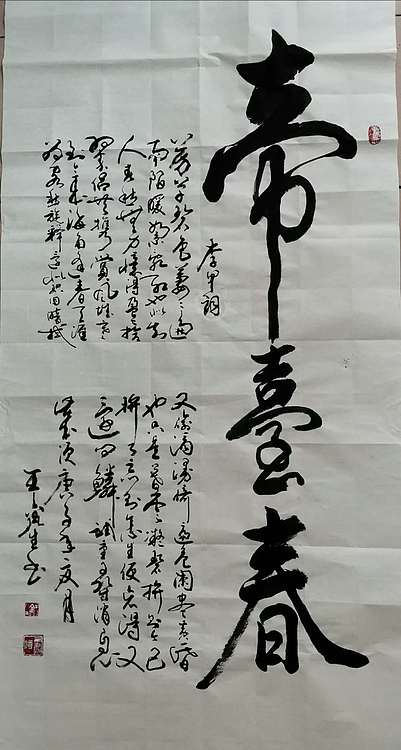 帝臺春
李甲詞
芳草碧色萋萋遍
南陌暖絮亂紅也似知
人春愁無力憶得盈盈拾
翠侶共攜賞鳳城寒食
到今來海角逢春天涯
為客愁旋釋還似織淚暗拭
又偷滴謾佇倚遍危闌盡黃昏
也只是暮雲凝碧拚則而今已
拚了忘則怎生便忘得又
還問鱗鴻試重尋消息
歲次庚子年二月
王 生書